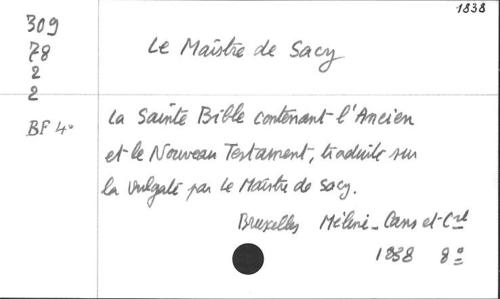 1838
309
78
2
2
BF 4°
Le Maistre de Sacy
La Sainte Bible contenant l'Ancien
et le Nouveau Testament, traduite sur
la Vulgate par Le Maistre de Sacy.
Bruxelles Méline-Cans et Cie
1838 8°